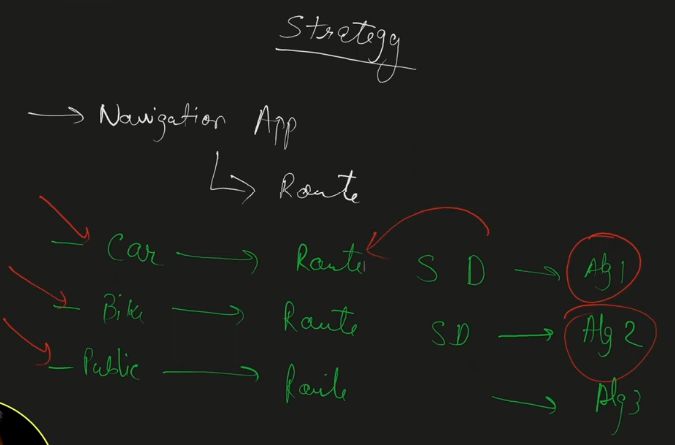 Strategy
→ Navigation App
↳ Route
– Car → Route S D → Alg 1
– Bike → Route SD → Alg 2
– Public → Route → Alg 3